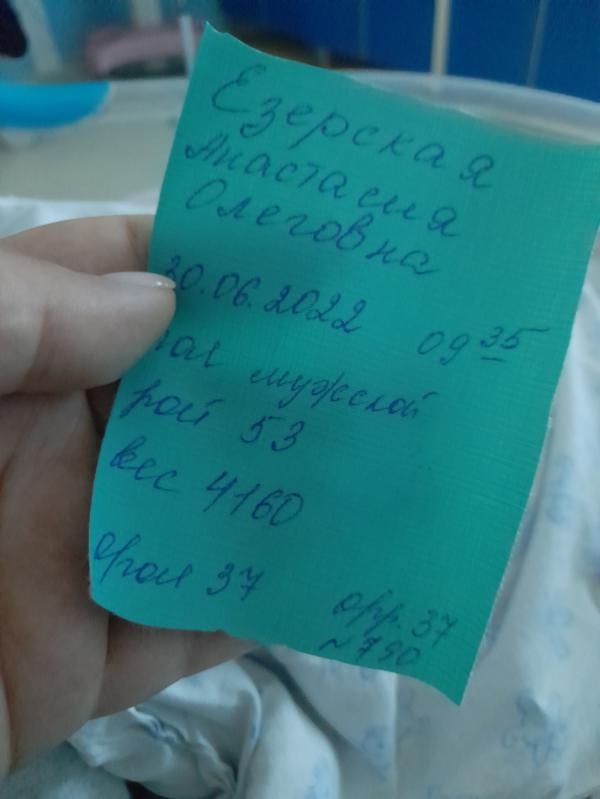 Езерская
Анастасия
Олеговна
30.06.2022 09 35
пол мужской
рост 53
вес 4160
37
37
N 790